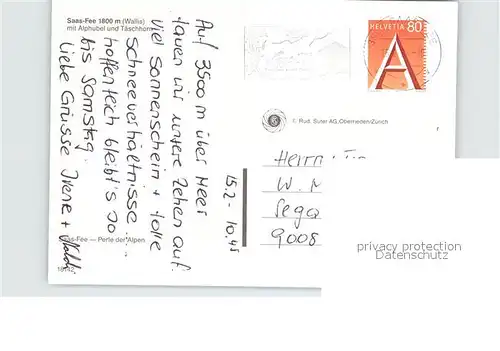 Saas-Fee 1800 m (Wallis)
mit Alphubel und Täschhorn
HELVETIA 80
A
Auf 3500 m über Meer
tauen wir unsere Zehen auf.
Viel Sonnenschein + tolle
Schneeverhältnisse
hoffentlich bleibt's so
bis Samstag.
Liebe Grüsse Irene +
15.2. 10.45
E. Rud. Suter AG, Oberrieden/Zürich
Herrn
W. M
Sega
9008
Saas-Fee — Perle der Alpen
privacy protection